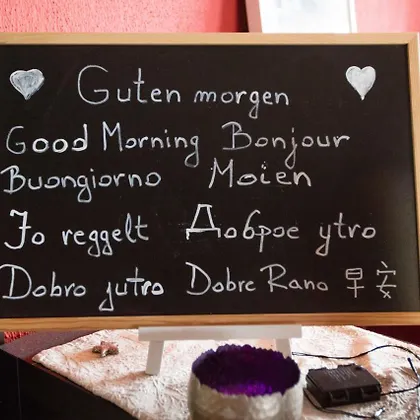 Guten morgen
Good Morning Bonjour
Buongiorno Moien
Jo reggelt Доброе утро
Dobro jutro Dobre Rano 早安